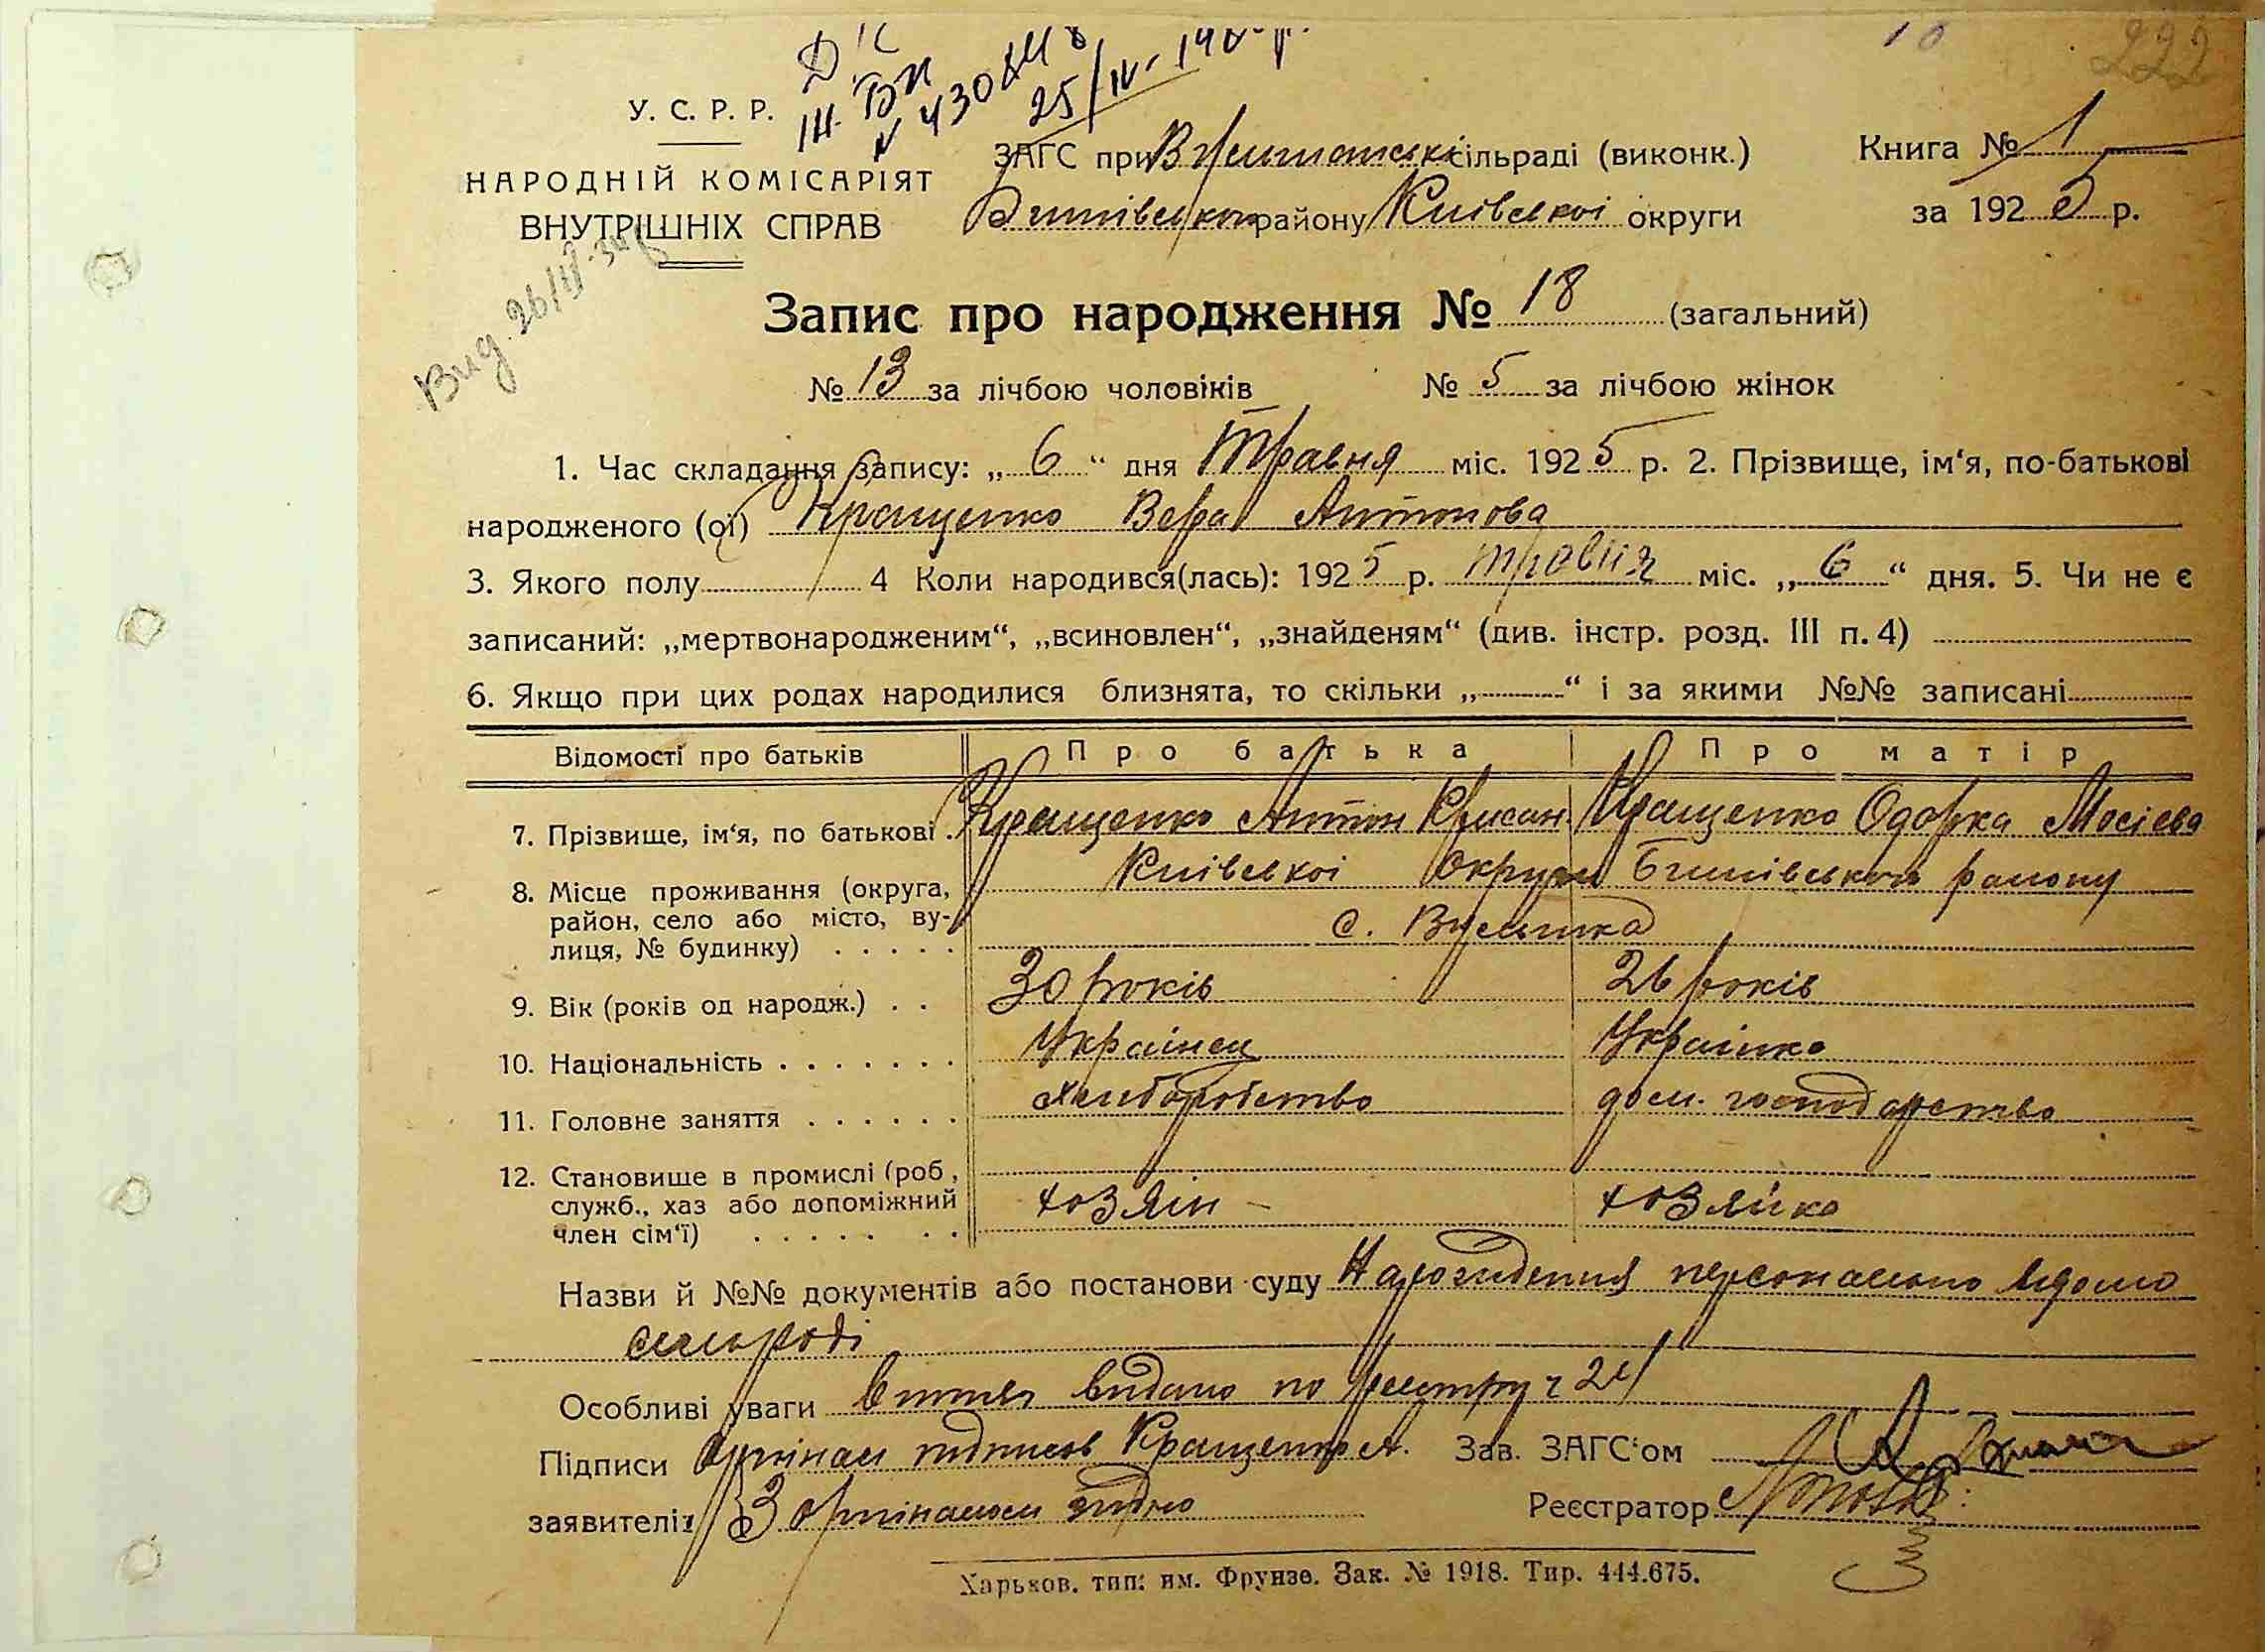 10 222
Д/С
ІІІ-БК
25/IV-
У. С. Р. Р.
ЗАГС при сільраді (виконк.) Книга № 1
НАРОДНІЙ КОМІСАРІЯТ
ВНУТРІШНІХ СПРАВ
району Київської округи за 1925 р.
Вид. 26/IV-
Запис про народження № 18 (загальний)
№ 13 за лічбою чоловіків № 5 за лічбою жінок
1. Час складання запису: „ 6 “ дня Травня міс. 1925 р. 2. Прізвище, ім‘я, по-батькові
народженого (ої) Кращенко Вера Антонова
3. Якого полу 4 Коли народився(лась): 1925 р. травня міс. „ 6 “ дня. 5. Чи не є
записаний: „мертвонародженим“, „всиновлен“, „знайденям“ (див. інстр. розд. III п. 4)
6. Якщо при цих родах народилися близнята, то скільки „ “ і за якими №№ записані
Відомості про батьків Про батька Про матір
7. Прізвище, ім‘я, по батькові . Кращенко Антон Крисан. Кращенко Одарка Мосієва
8. Місце проживання (округа, Київської округи району
район, село або місто, ву-
лиця, № будинку) . . . . . с.
9. Вік (років од народж.) . . 30 років 26 років
10. Національність . . . . . . . Українец Українка
11. Головне заняття . . . . . . хліборобство дом. господарство
12. Становище в промислі (роб,
служб., хаз або допоміжний хозяін - хозяйка
член сім‘ї) . . . . . . .
Назви й №№ документів або постанови суду Народження персонально відомо
сельраді
Особливі уваги видано по реєстру
Підписи Оригінал підписав Кращенко А. Зав. ЗАГС‘ом
заявителів З оригіналом згідно Реєстратор
Харьков. тип. им. Фрунзе. Зак. № 1918. Тир. 444.675.